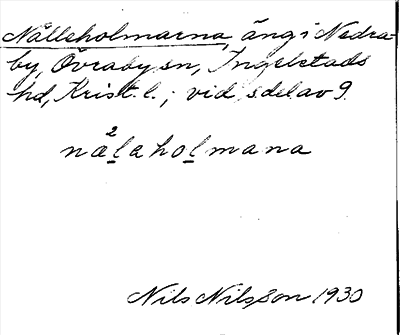 Nälleholmarna, äng i Nedra-
by, Övraby sn, Ingelstads
hd, Krist. l.; vid s delav 9.
2
nälaholmana
Nils Nilsson 1930